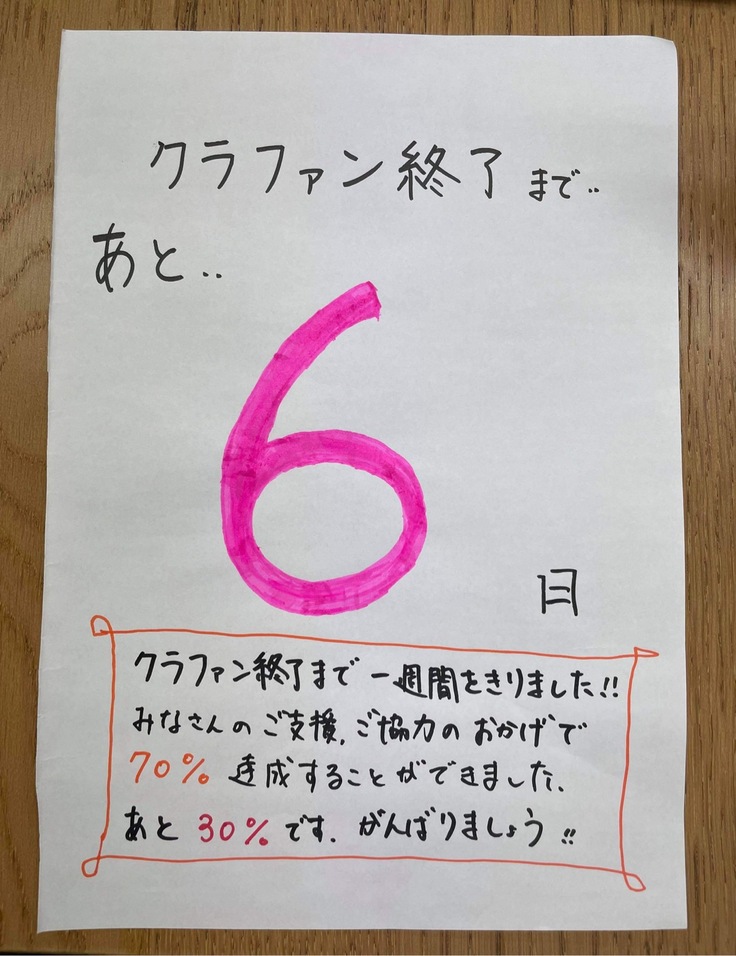 クラファン終了まで..
あと..
6
日
クラファン終了まで一週間をきりました!!
みなさんのご支援、ご協力のおかげで
70% 達成することができました、
あと 30%です、がんばりましょう!!